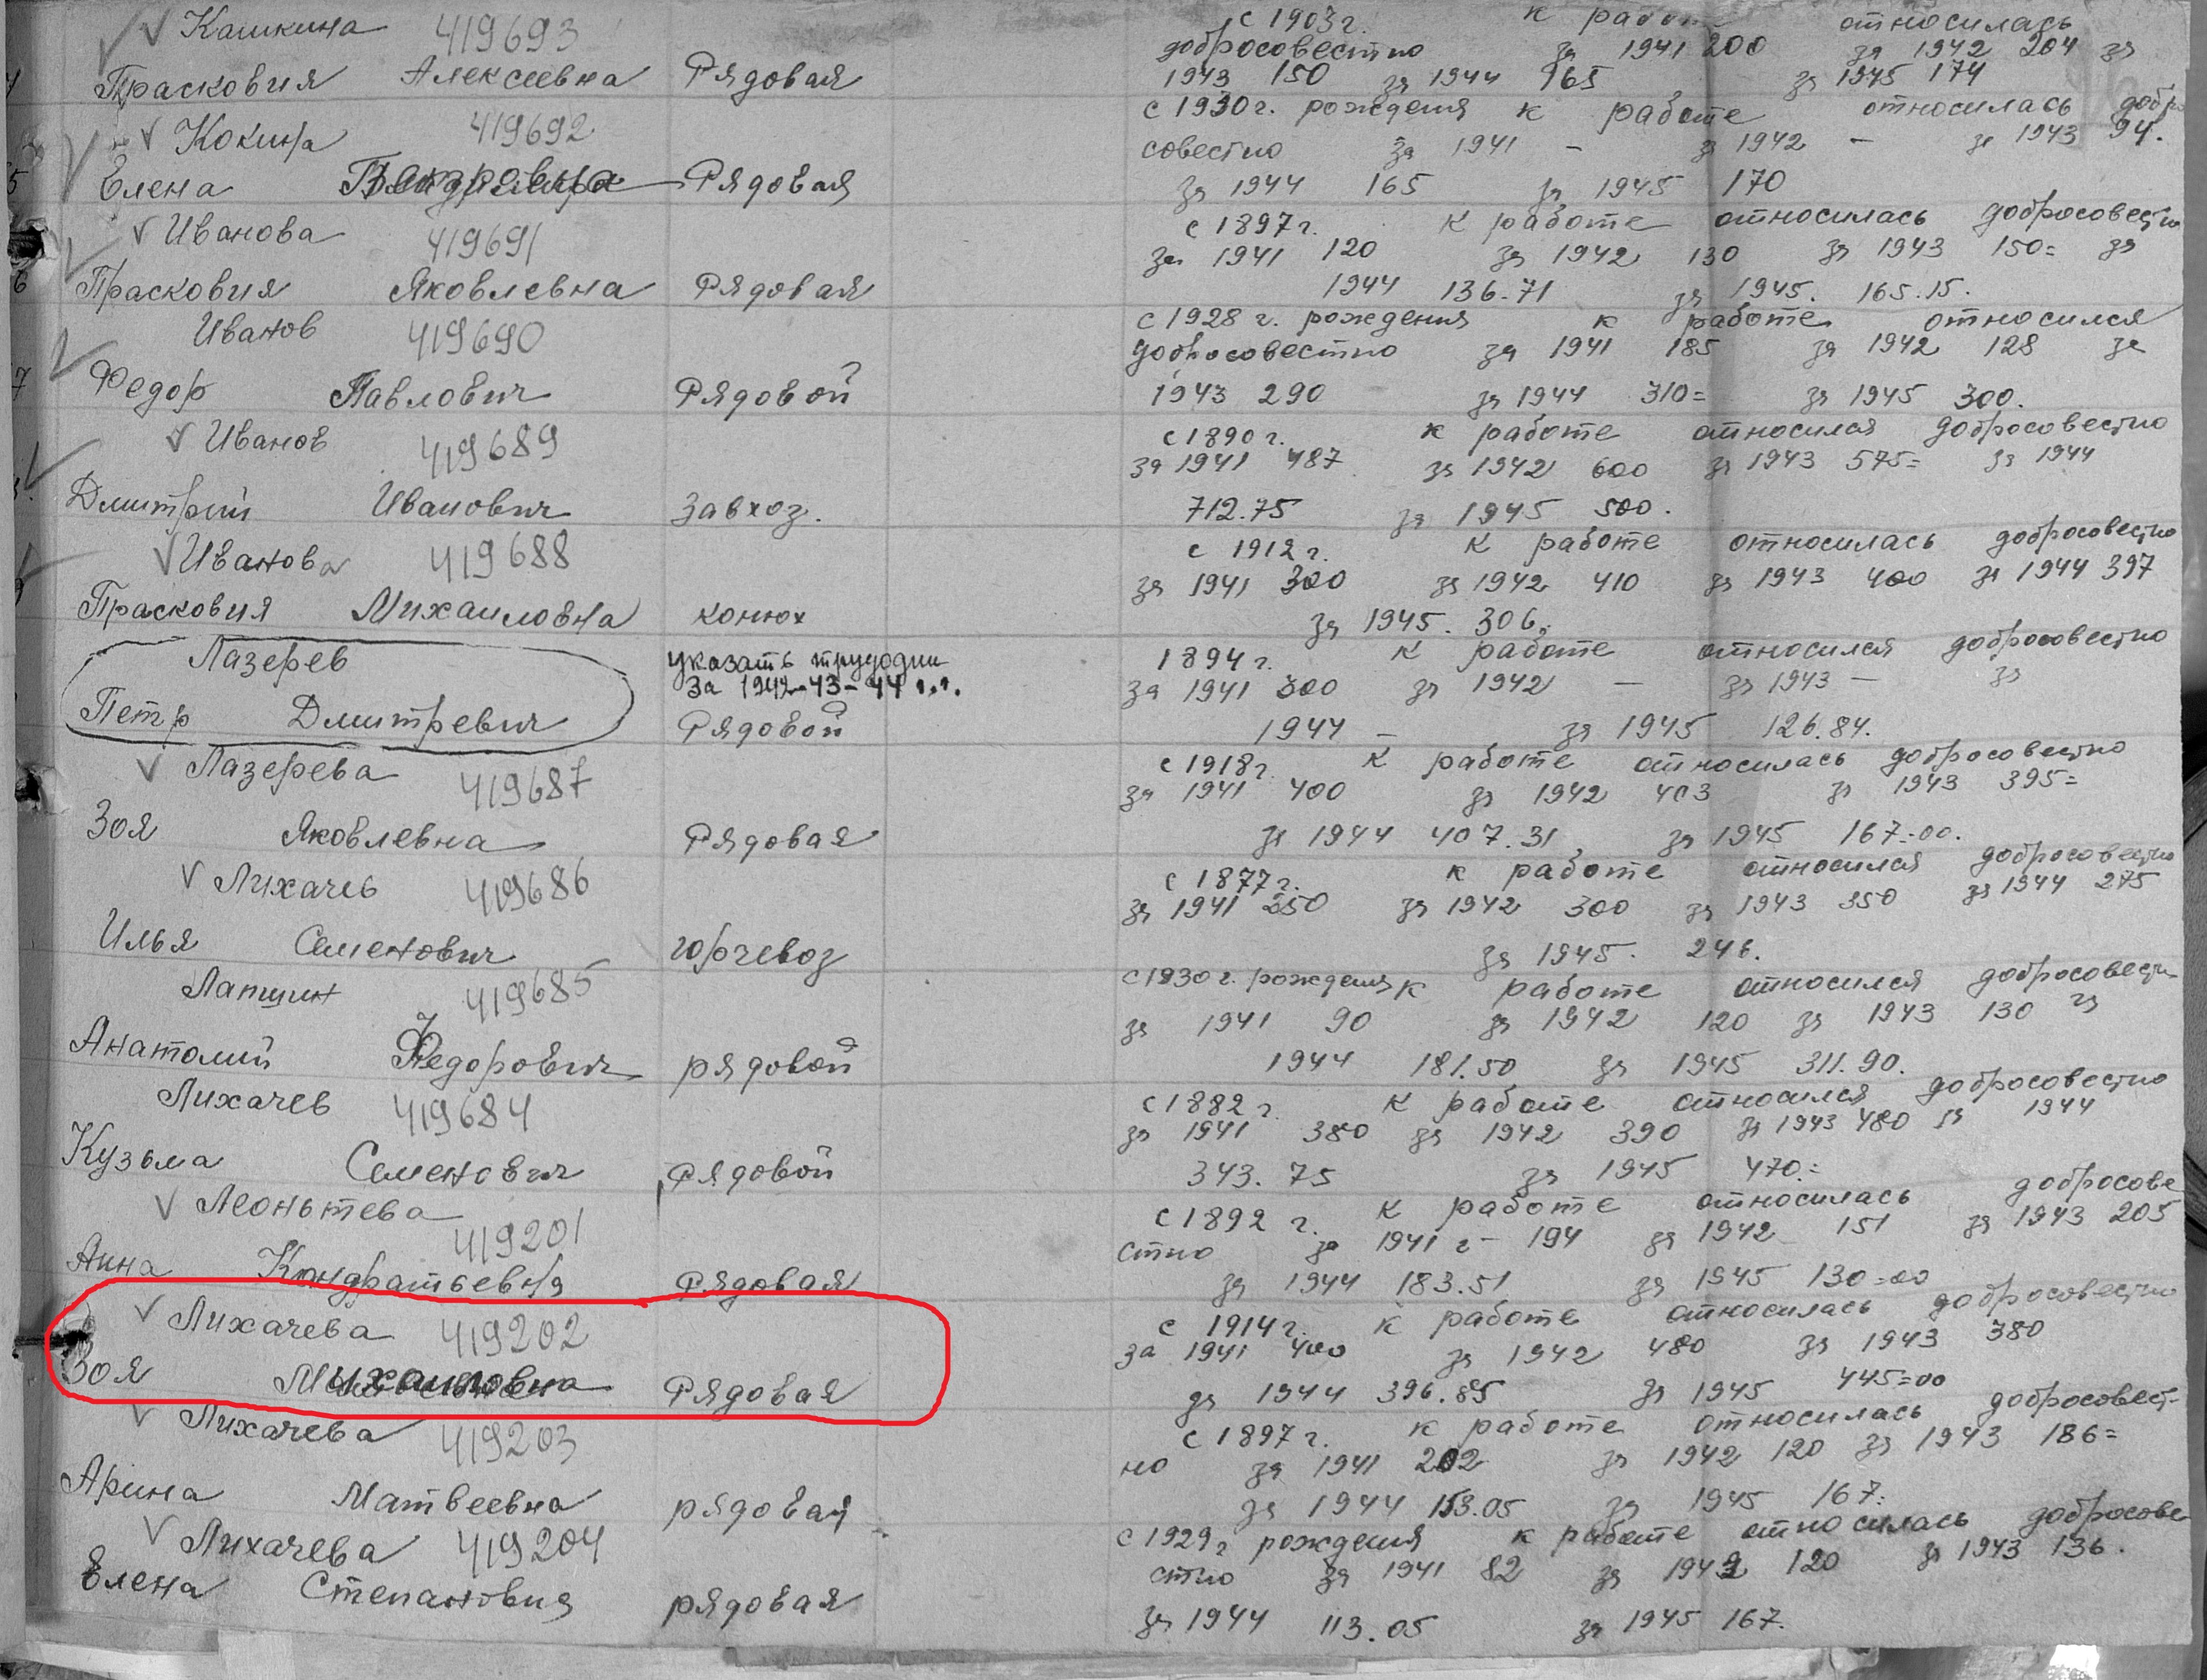 √ Кашкина 419693 с 1903г. к работе относилась
добросовестно за 1941 200 за 1942 204 за
Прасковия Алексеевна Рядовая 1943 150 за 1944 165 за 1945 174
√ Кокина 419692 с 1930г. рождения к работе относилась добро
совестно за 1941 - за 1942 - за 1943 94.
Елена Рядовая за 1944 165 за 1945 170
√ Иванова 419691 с 1897г. к работе относилась добросовестно
за 1941 120 за 1942 130 за 1943 150= за
6 Прасковия Яковлевна Рядовая 1944 136.71 за 1945. 165.15.
Иванов 419690 с 1928 г. рождения к работе относился
добросовестно за 1941 185 за 1942 128 за
7 Федор Павлович Рядовой 1943 290 за 1944 310= за 1945 300.
√ Иванов 419689 с 1890г. к работе относился добросовестно
за 1941 487 за 1942 600 за 1943 575= за 1944
Дмитрий Иванович Завхоз. 712.75 за 1945 500.
√ Иванова 419688 с 1912г. к работе относилась добросовестно
за 1941 300 за 1942 410 за 1943 400 за 1944 397
Прасковия Михаиловна конюх за 1945. 306.
Лазерев указать трудодни 1894г. к работе относился добросовестно
за 1942-43-44 г.г. за 1941 300 за 1942 - за 1943 - за
Петр Дмитревич Рядовой 1944 - за 1945 126.84.
√ Лазерева 419687 с 1918г. к работе относилась добросовестно
за 1941 400 за 1942 403 за 1943 395=
Зоя Яковлевна Рядовая за 1944 407.31 за 1945 167=00.
√ Лихачев 419686 с 1877г. к работе относился добросовестно
за 1941 250 за 1942 300 за 1943 350 за 1944 275
Илья Семенович горчевоз за 1945. 246.
Лапшин 419685 с 1930г. рождения к работе относился добросовестн
за 1941 90 за 1942 120 за 1943 130 за
Анатолий Федорович рядовой 1944 181.50 за 1945 311.90.
Лихачев 419684 с 1882г. к работе относился добросовестно
за 1941 380 за 1942 390 за 1943 480 за 1944
Кузьма Семенович Рядовой 343.75 за 1945 470.=
√ Леоньтева 419201 с 1892 г. к работе относилась добросове
стно за 1941 г - 194 за 1942 151 за 1943 205
Анна Кондратьевна Рядовая за 1944 183.51 за 1945 130=00
√ Лихачева 419202 с 1914г. к работе относилась добросовестно
за 1941 400 за 1942 480 за 1943 380
Зоя Михаиловна Рядовая за 1944 396.85 за 1945 445=00
√ Лихачева 419203 с 1897г. к работе относилась добросовест-
но за 1941 202 за 1942 120 за 1943 186=
Арина Матвеевна рядовая за 1944 153.05 за 1945 167.=
√ Лихачева 419204 с 1929г рождения к работе относилась добросове
стно за 1941 82 за 1942 120 за 1943 136.
Елена Степановна рядовая за 1944 113.05 за 1945 167.